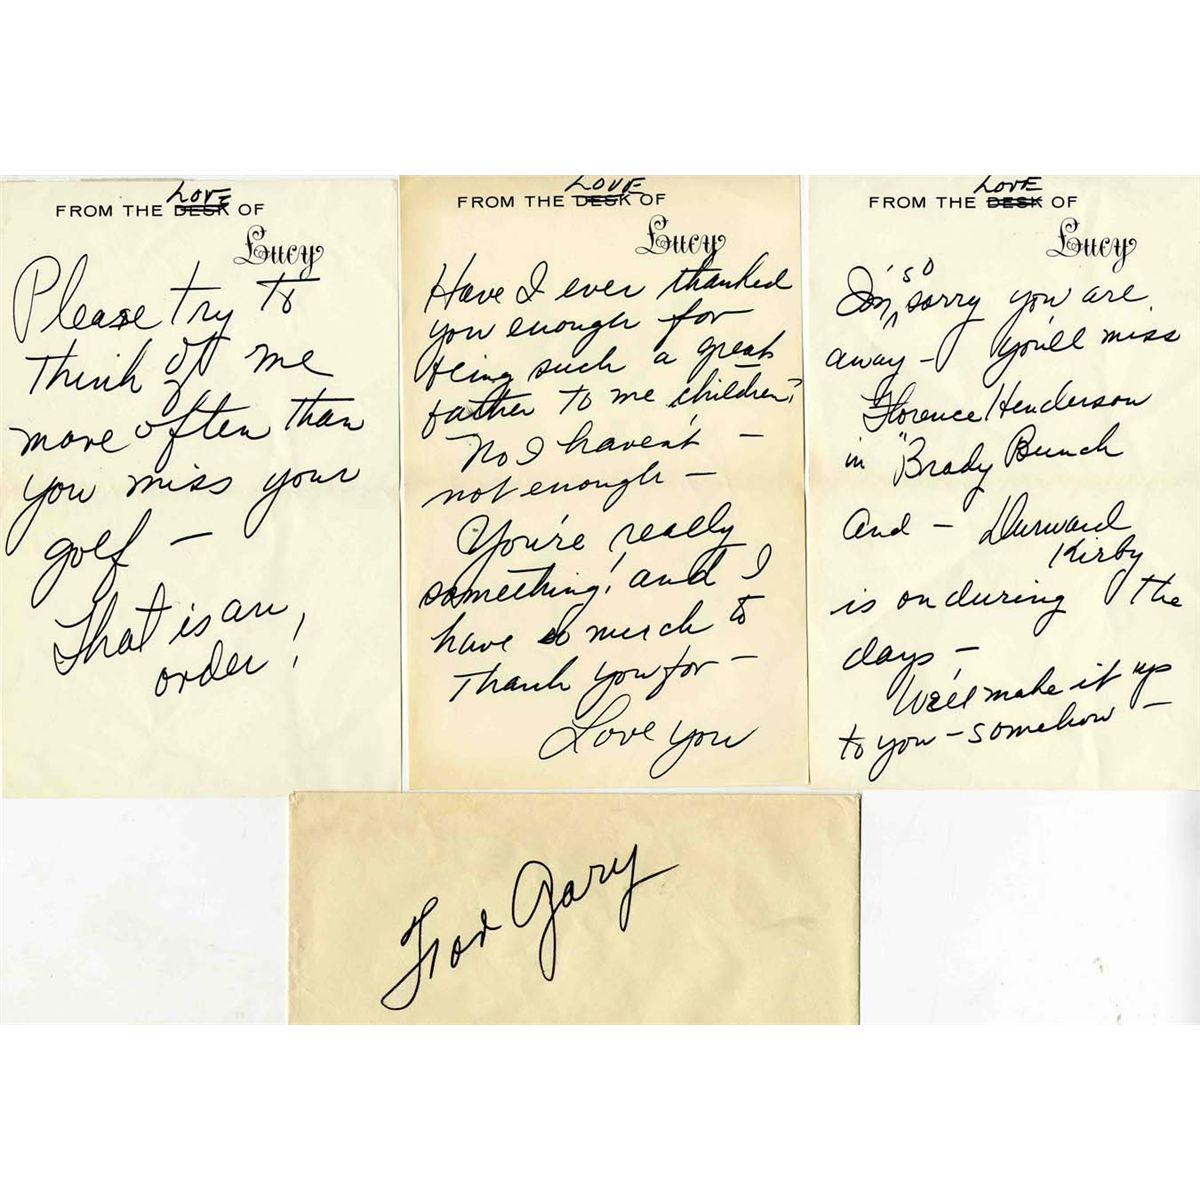 LOVE
FROM THE DESK OF
Lucy
Please try to
think of me
more often than
you miss your
golf —
That is an
order!
LOVE
FROM THE DESK OF
Lucy
Have I ever thanked
you enough for
being such a great
father to me children?
No I haven't —
not enough —
You're really
something! and I
have so much to
thank you for —
Love you
LOVE
FROM THE DESK OF
Lucy
so
I'm sorry you are
away — you'll miss
Florence Henderson
in "Brady Bunch
and — Durward
Kirby
is on during the
days —
We'll make it up
to you — somehow —
For Gary